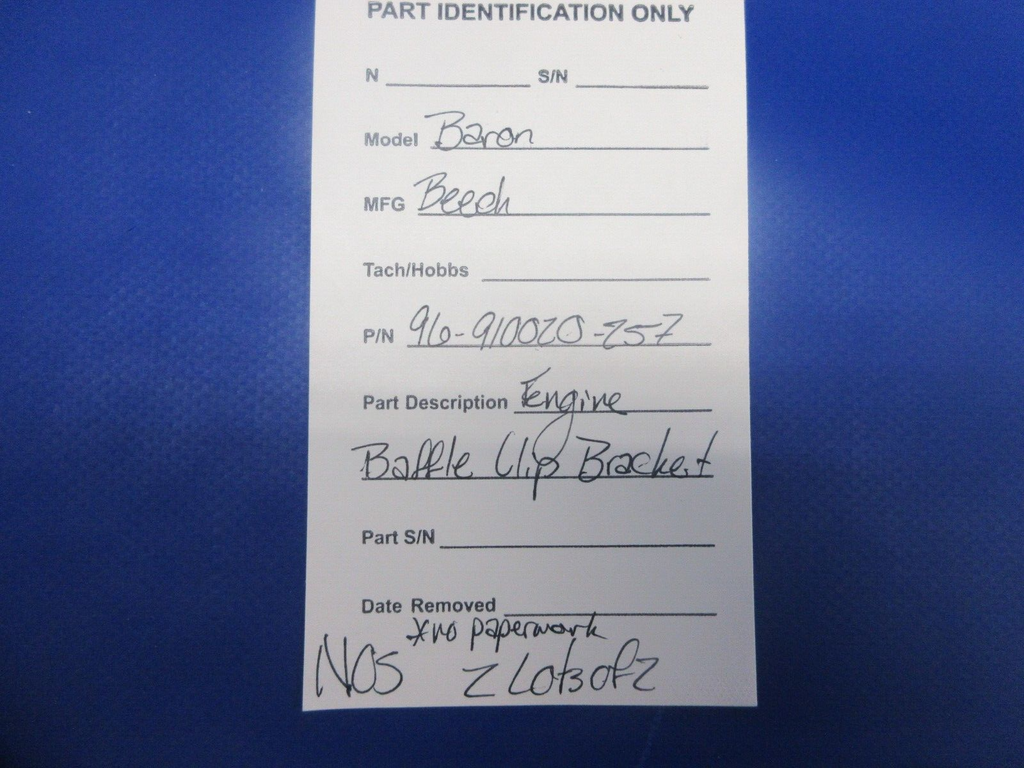 PART IDENTIFICATION ONLY
N S/N
Model Baron
MFG Beech
Tach/Hobbs
P/N 96-910020-257
Part Description Engine
Baffle Clip Bracket
Part S/N
Date Removed
*no paperwork
NOS 2 Lots of 2